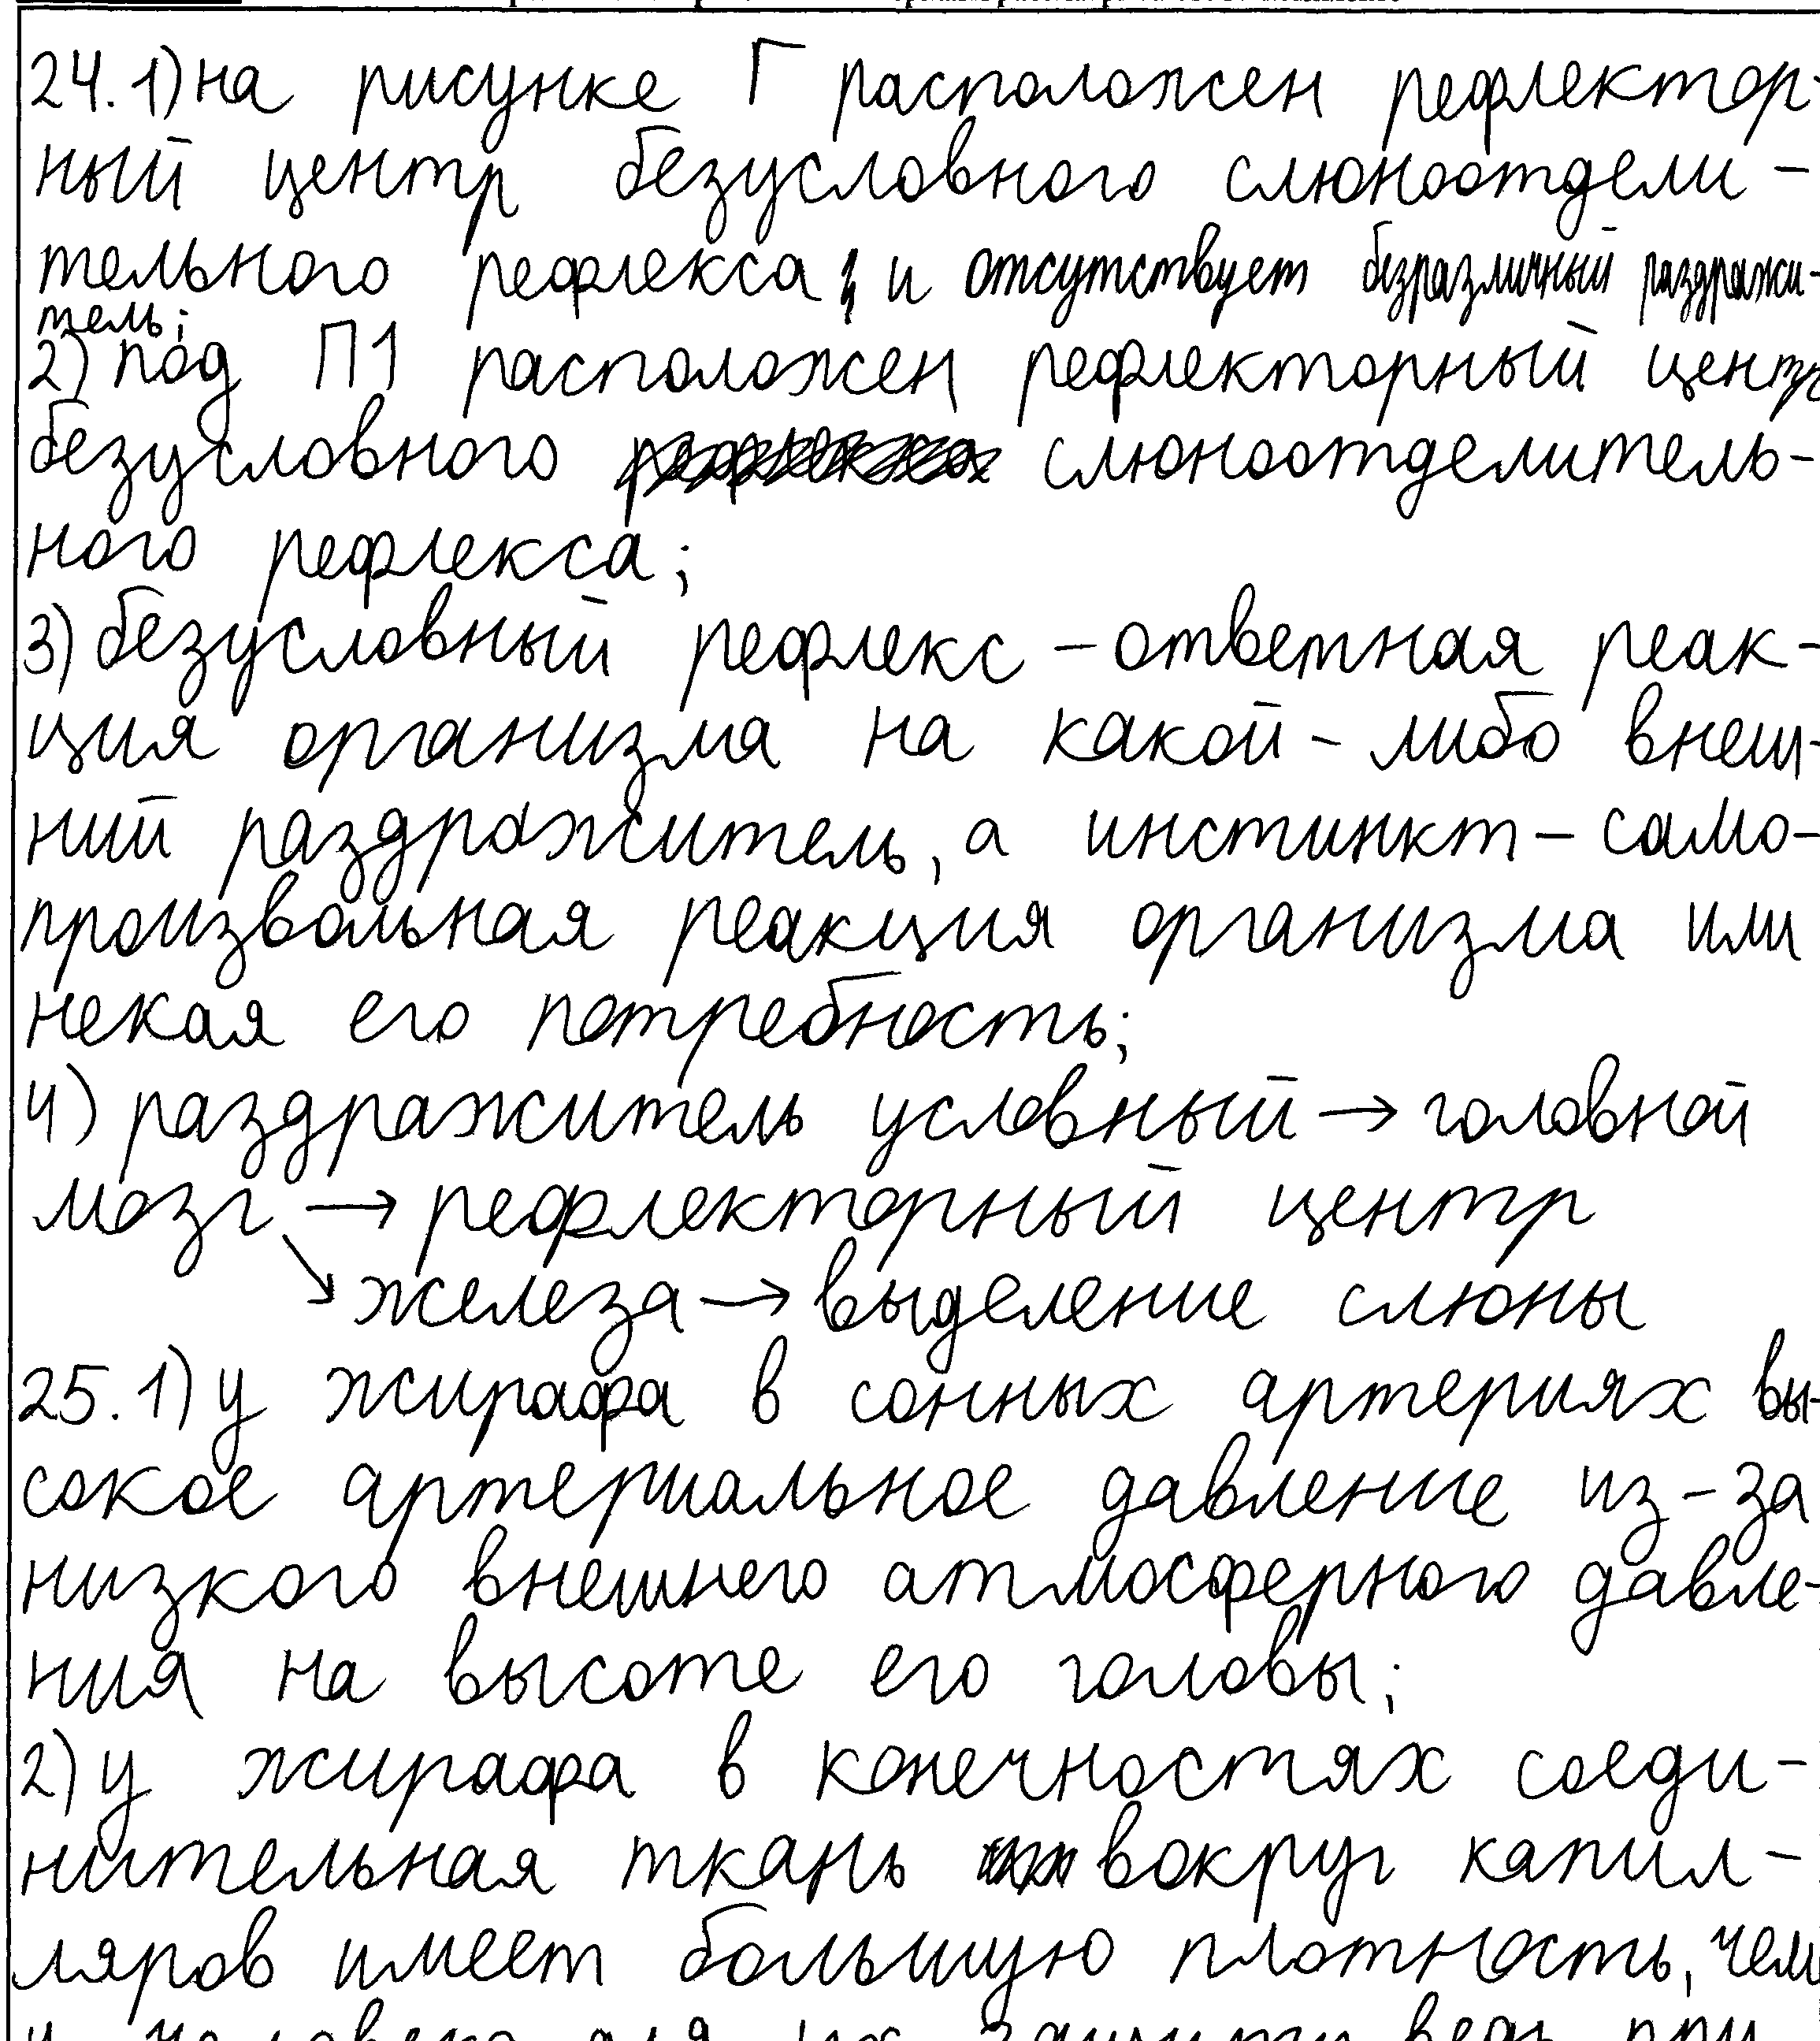 24.1) на рисунке Г расположен рефлектор-
ный центр безусловного слюноотдели-
тельного рефлекса и отсутствует безразличный раздражи-
тель;
2) под П1 расположен рефлекторный центр
безусловного слюноотделитель-
ного рефлекса;
3) безусловный рефлекс - ответная реак-
ция организма на какой-либо внеш-
ний раздражитель, а инстинкт - само-
произвольная реакция организма или
некая его потребность;
4) раздражитель условный → головной
мозг → рефлекторный центр
↘ железа → выделение слюны
25.1) у жирафа в сонных артериях вы-
сокое артериальное давление из-за
низкого внешнего атмосферного давле-
ния на высоте его головы;
2) у жирафа в конечностях соеди-
нительная ткань вокруг капил-
ляров имеет большую плотность, чем